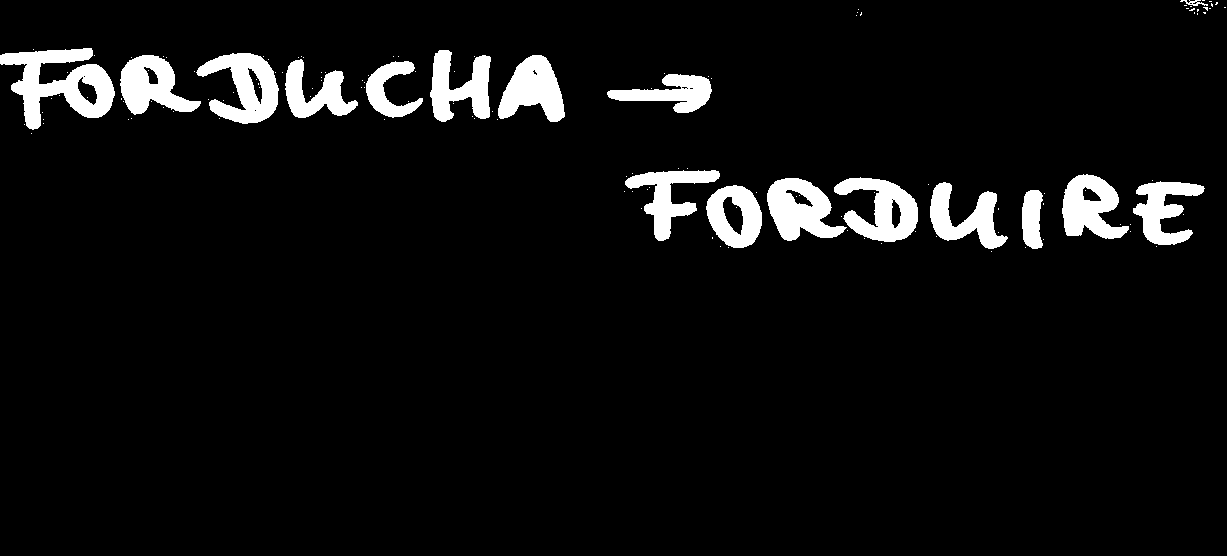 FORDUCHA →
FORDUIRE